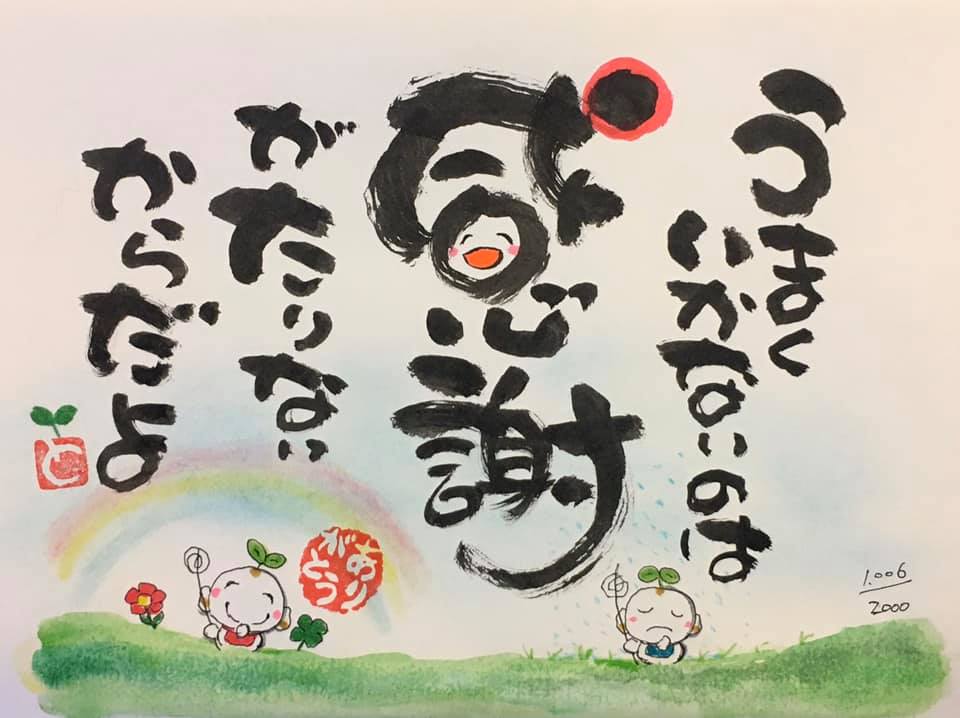 うまく
いかないのは
感謝
がたりない
からだよ
ありがとう
と
1.006
2000